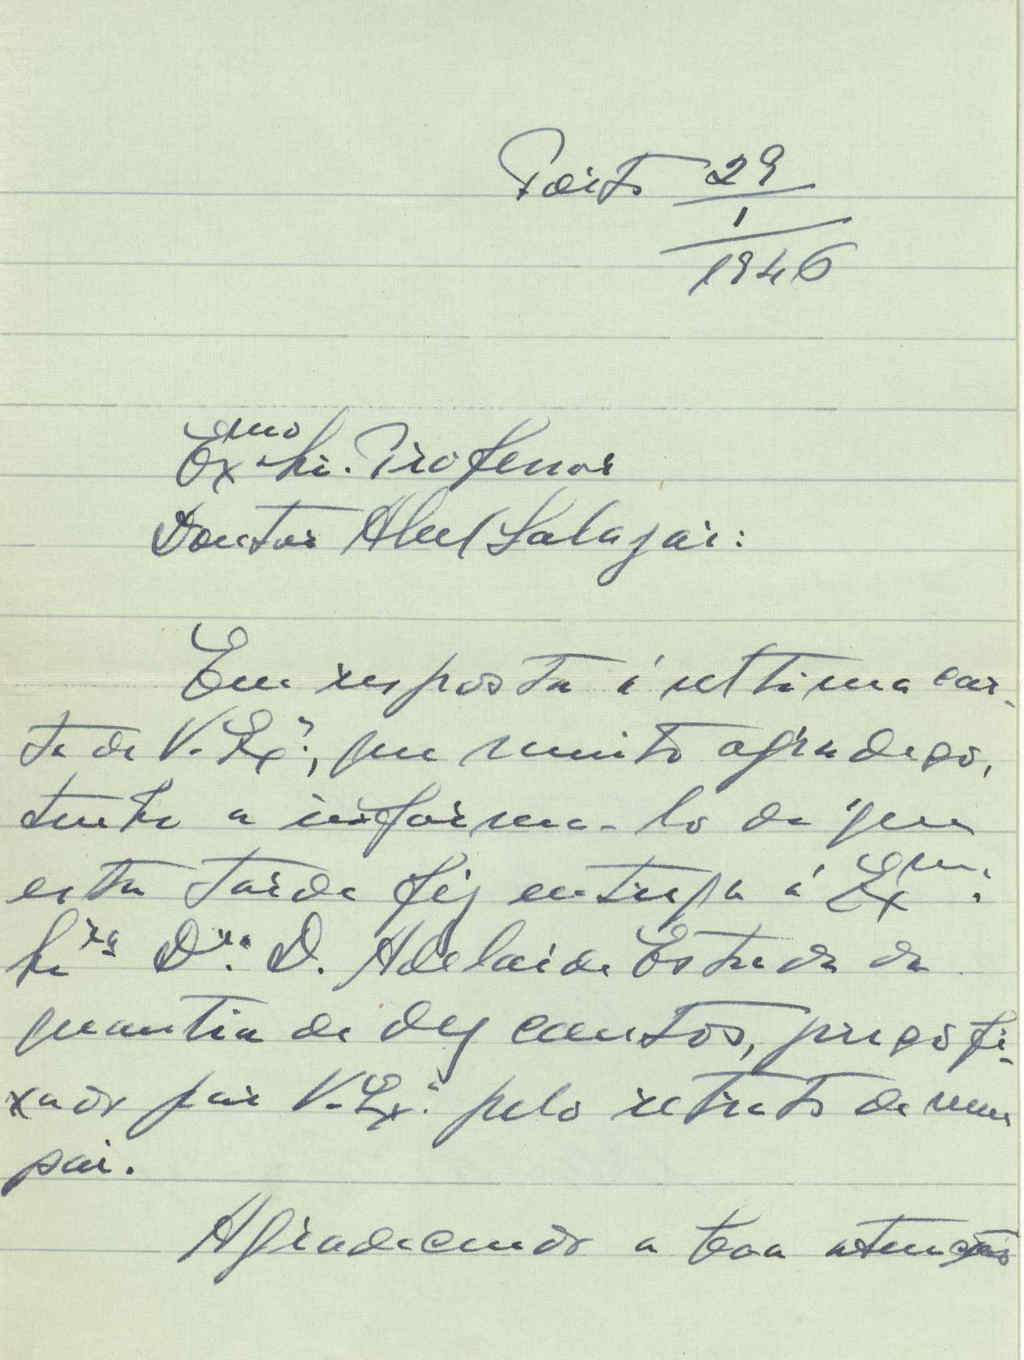 Porto 29
1
1946
Exmo Sr. Professor
Doutor Abel Salazar:
Em resposta á ultima car-
ta de V. Ex.ª, que muito agradeço,
tenho a informa-lo de que
esta tarde fiz entrega á Exma.
Sra Dra. D. Adelaide Estrada da
quantia de dez contos, preço fi-
xado por V. Ex.ª pelo retrato de meu
pai.
Agradecendo a boa atenção